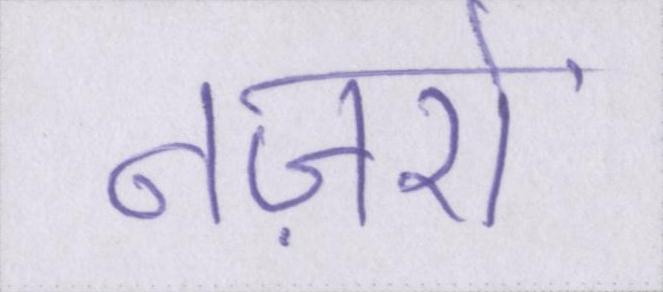 नज़रों